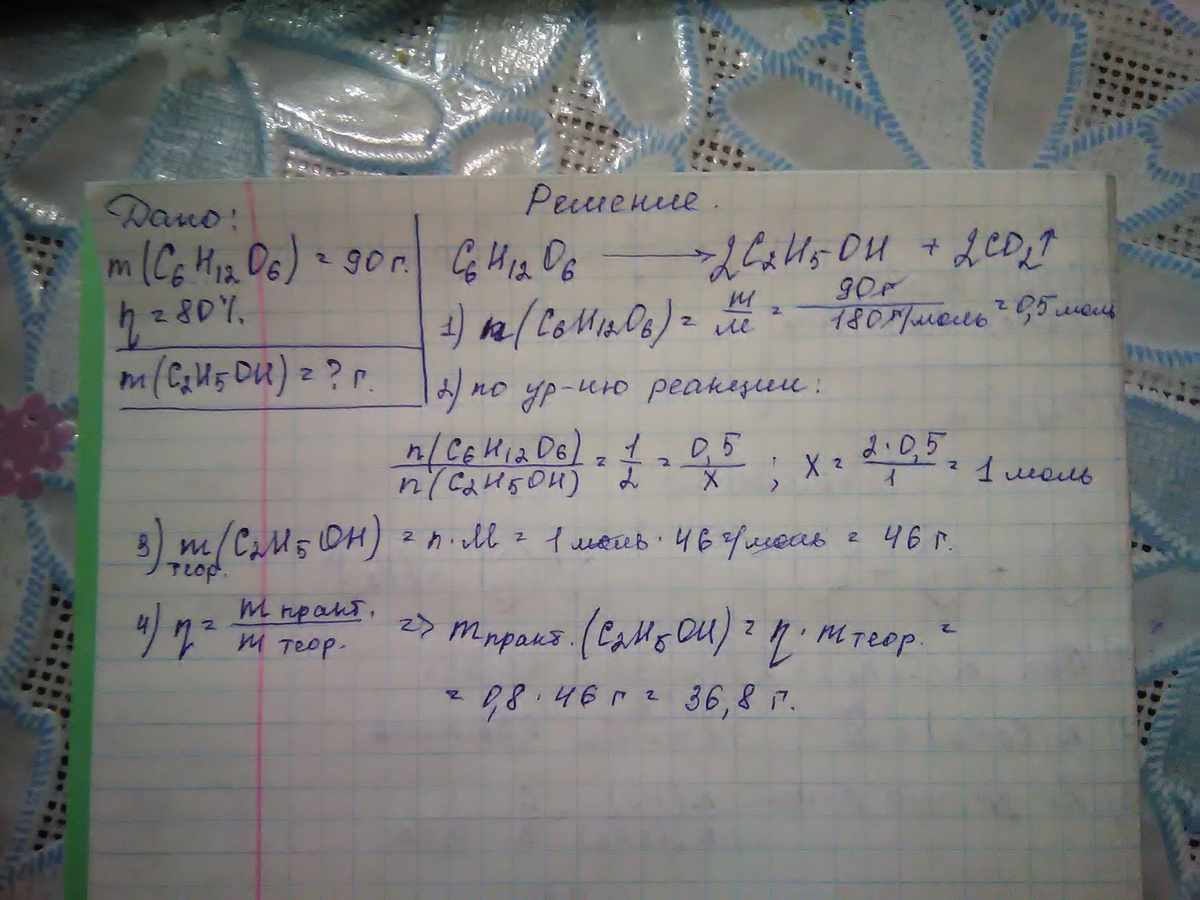 Дано:
m(C₆H₁₂O₆) = 90 г.
η = 80%.
m(C₂H₅OH) = ? г.
Решение.
C₆H₁₂O₆ → 2C₂H₅OH + 2CO₂↑
1) n(C₆H₁₂O₆) = m/M = 90г/180г/моль = 0,5 моль
2) по ур-ию реакции:
n(C₆H₁₂O₆)/n(C₂H₅OH) = 1/2 = 0,5/x ; x = 2·0,5/1 = 1 моль
3) m теор. (C₂H₅OH) = n·M = 1 моль · 46 г/моль = 46 г.
4) η = m практ./m теор. => m практ. (C₂H₅OH) = η · m теор. =
= 0,8 · 46 г = 36,8 г.